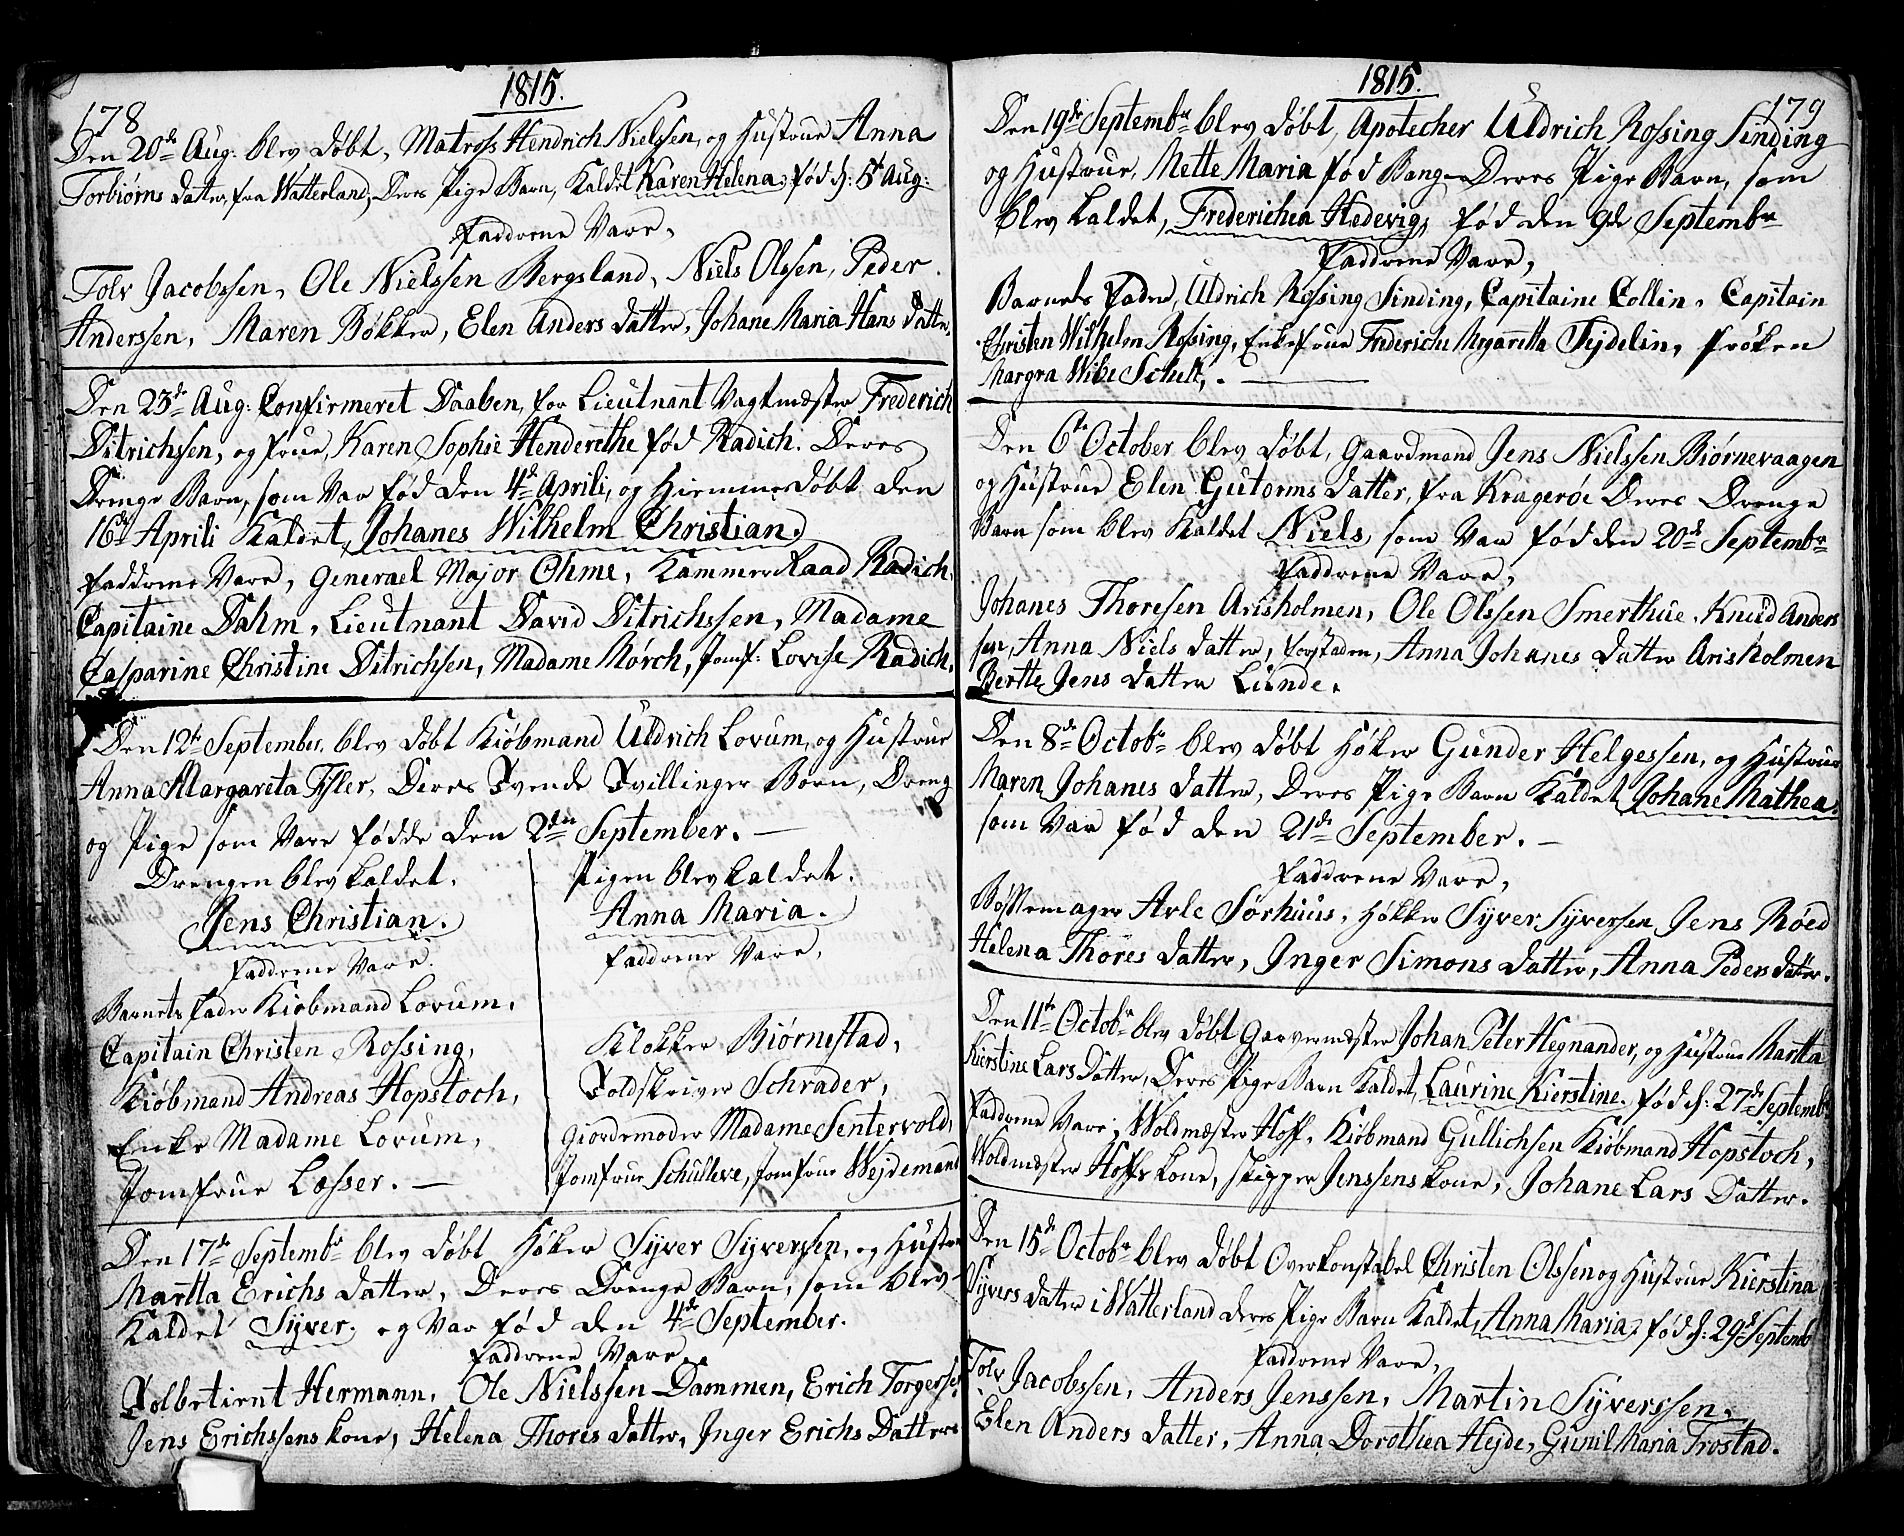 178
1815.
Den 20de Aug: blev døbt, Matros Hendrich Nielssen, og Hustrue Anna
Torbiørns datter, fra Watterland, Deres Pige Barn, Kaldet Karen Helena, fød d: 5t Aug:
Faddrene Vare,
Tolv Jacobssen, Ole Nielssen Bergsland, Niels Olssen, Peder
Anderssen, Maren Bøkker, Elen Anders datter, Johane Maria Hans datter.
Den 23de Aug: Confirmeret Daaben, for Lieutnant Vagtmester Frederich
Ditrichsen, og frue, Karen Sophie Henderethe fød Radich. Deres
Drenge Barn, som Var fød den 4de Aprili, og Hiemmedøbt den
16de Aprili Kaldet, Johanes Wilhelm Christian.
Faddrene Vare, Generael Major Ohme, Kammer Raad Radich,
Capitaine Dahm, Lieutnant David Ditrichssen, Madame
Casparine Christine Ditrichsen, Madame Mørch, Jomf: Lovise Radich,
Den 12te September blev døbt Kiøbmand Uldrich Lorum, og Hustrue
Anna Margareta Isler, Deres Tvende Tvillinger Børn, Dreng
og Pige som Vare fødde den 2den September. —
Drengen blev kaldet.
Jens Christian.
Faddrene Vare.
Barnets Fader Kiøbmand Lorum,
Capitain Christen Rossing,
Kiøbmand Andreas Hopstoch,
Enke Madame Lorum,
Jomfrue Løsser. —
Pigen blev kaldet.
Anna Maria.
Faddrene Vare,
Klokker Biørnestad,
Toldskriver Schrader,
Giordemoder Madame Sentervold,
Jomfrue Schulleve, Jomfrue Wejdemand
Den 17de Septembr blev døbt Høker Syver Syverssen, og Hustrue
Martta Erichs datter, Deres Drenge Barn, som blev
Kaldet Syver, og Var fød den 4de September.
Faddrene Vare
Tolbetient Hermann, Ole Nielssen Dammen, Erich Torgerssen
Jens Erichssens kone, Helena Thores datter, Inger Erichs Datter
1815.
179
Den 19de Septembr blev døbt, Apotecher Uldrich Rossing Sinding
og Hustrue, Mette Maria fød Bang. Deres Pige Barn, som
blev kaldet, Frederichea Hedevig, fød den 9de Septembr
Faddrene Vare,
Barnets Fader, Uldrich Rossing Sinding, Capitaine Collin, Capitain
Christen Wilhelm Rossing, Enkefrue Frederiche Mrgaretta Tejdelin, frøken
Margra Wibe Schelt, . —
Den 6te October blev døbt, Gaardmand Jens Nielssen Biørnevaagen
og Hustrue Elen Gutorms datter, fra Kragerøe Deres Drenge
Barn som blev Kaldet Niels, som Var fød den 20de Septembr
Faddrene Vare,
Johanes Thoresen Arisholmen, Ole Olssen Smerthue, Knud Anders
sen, Anna Niels datter, Forstaden, Anna Johanes datter Arisholmen
Bertte Jens datter Lunde.
Den 8de Octobr blev døbt Høker Gunder Helgessen, og Hustrue
Maren Johanes datter, Deres Pige Barn Kaldet Johane Mathea,
som Var fød den 21de September. —
Faddrene Vare,
Bøssemager Arle Sørhuus, Høkker Syver Syversen Jens Røed
Helena Thores datter, Inger Simons datter, Anna Peders datter.
Den 11te Octobr blev døbt Garvermester Johan Peter Hegnander, og Hustrue Martta
Kierstine Lars Datter, Deres Pige Barn Kaldet, Laurine Kierstine. fød d: 27de Septembr
Faddrene Vare, Woldmester Hoff, Kiøbmand Gullichsen Kiøbmand Hopstoch,
Woldmester Hoffs kone, skipper Jenssens kone, Johane Lars Datter.
Den 15de Octobr blev døbt Overkonstabel Christen Olssen og Hustrue Kierstina
Syvers datter i Watterland deres Pige Barn Kaldet, Anna Maria, fød d: 29de Septemb
Faddrene Vare,
Tolv Jacobssen, Anders Jenssen, Martin Syverssen,
Elen Anders datter, Anna Dorothea Hejde, Gunil Maria Trostad.